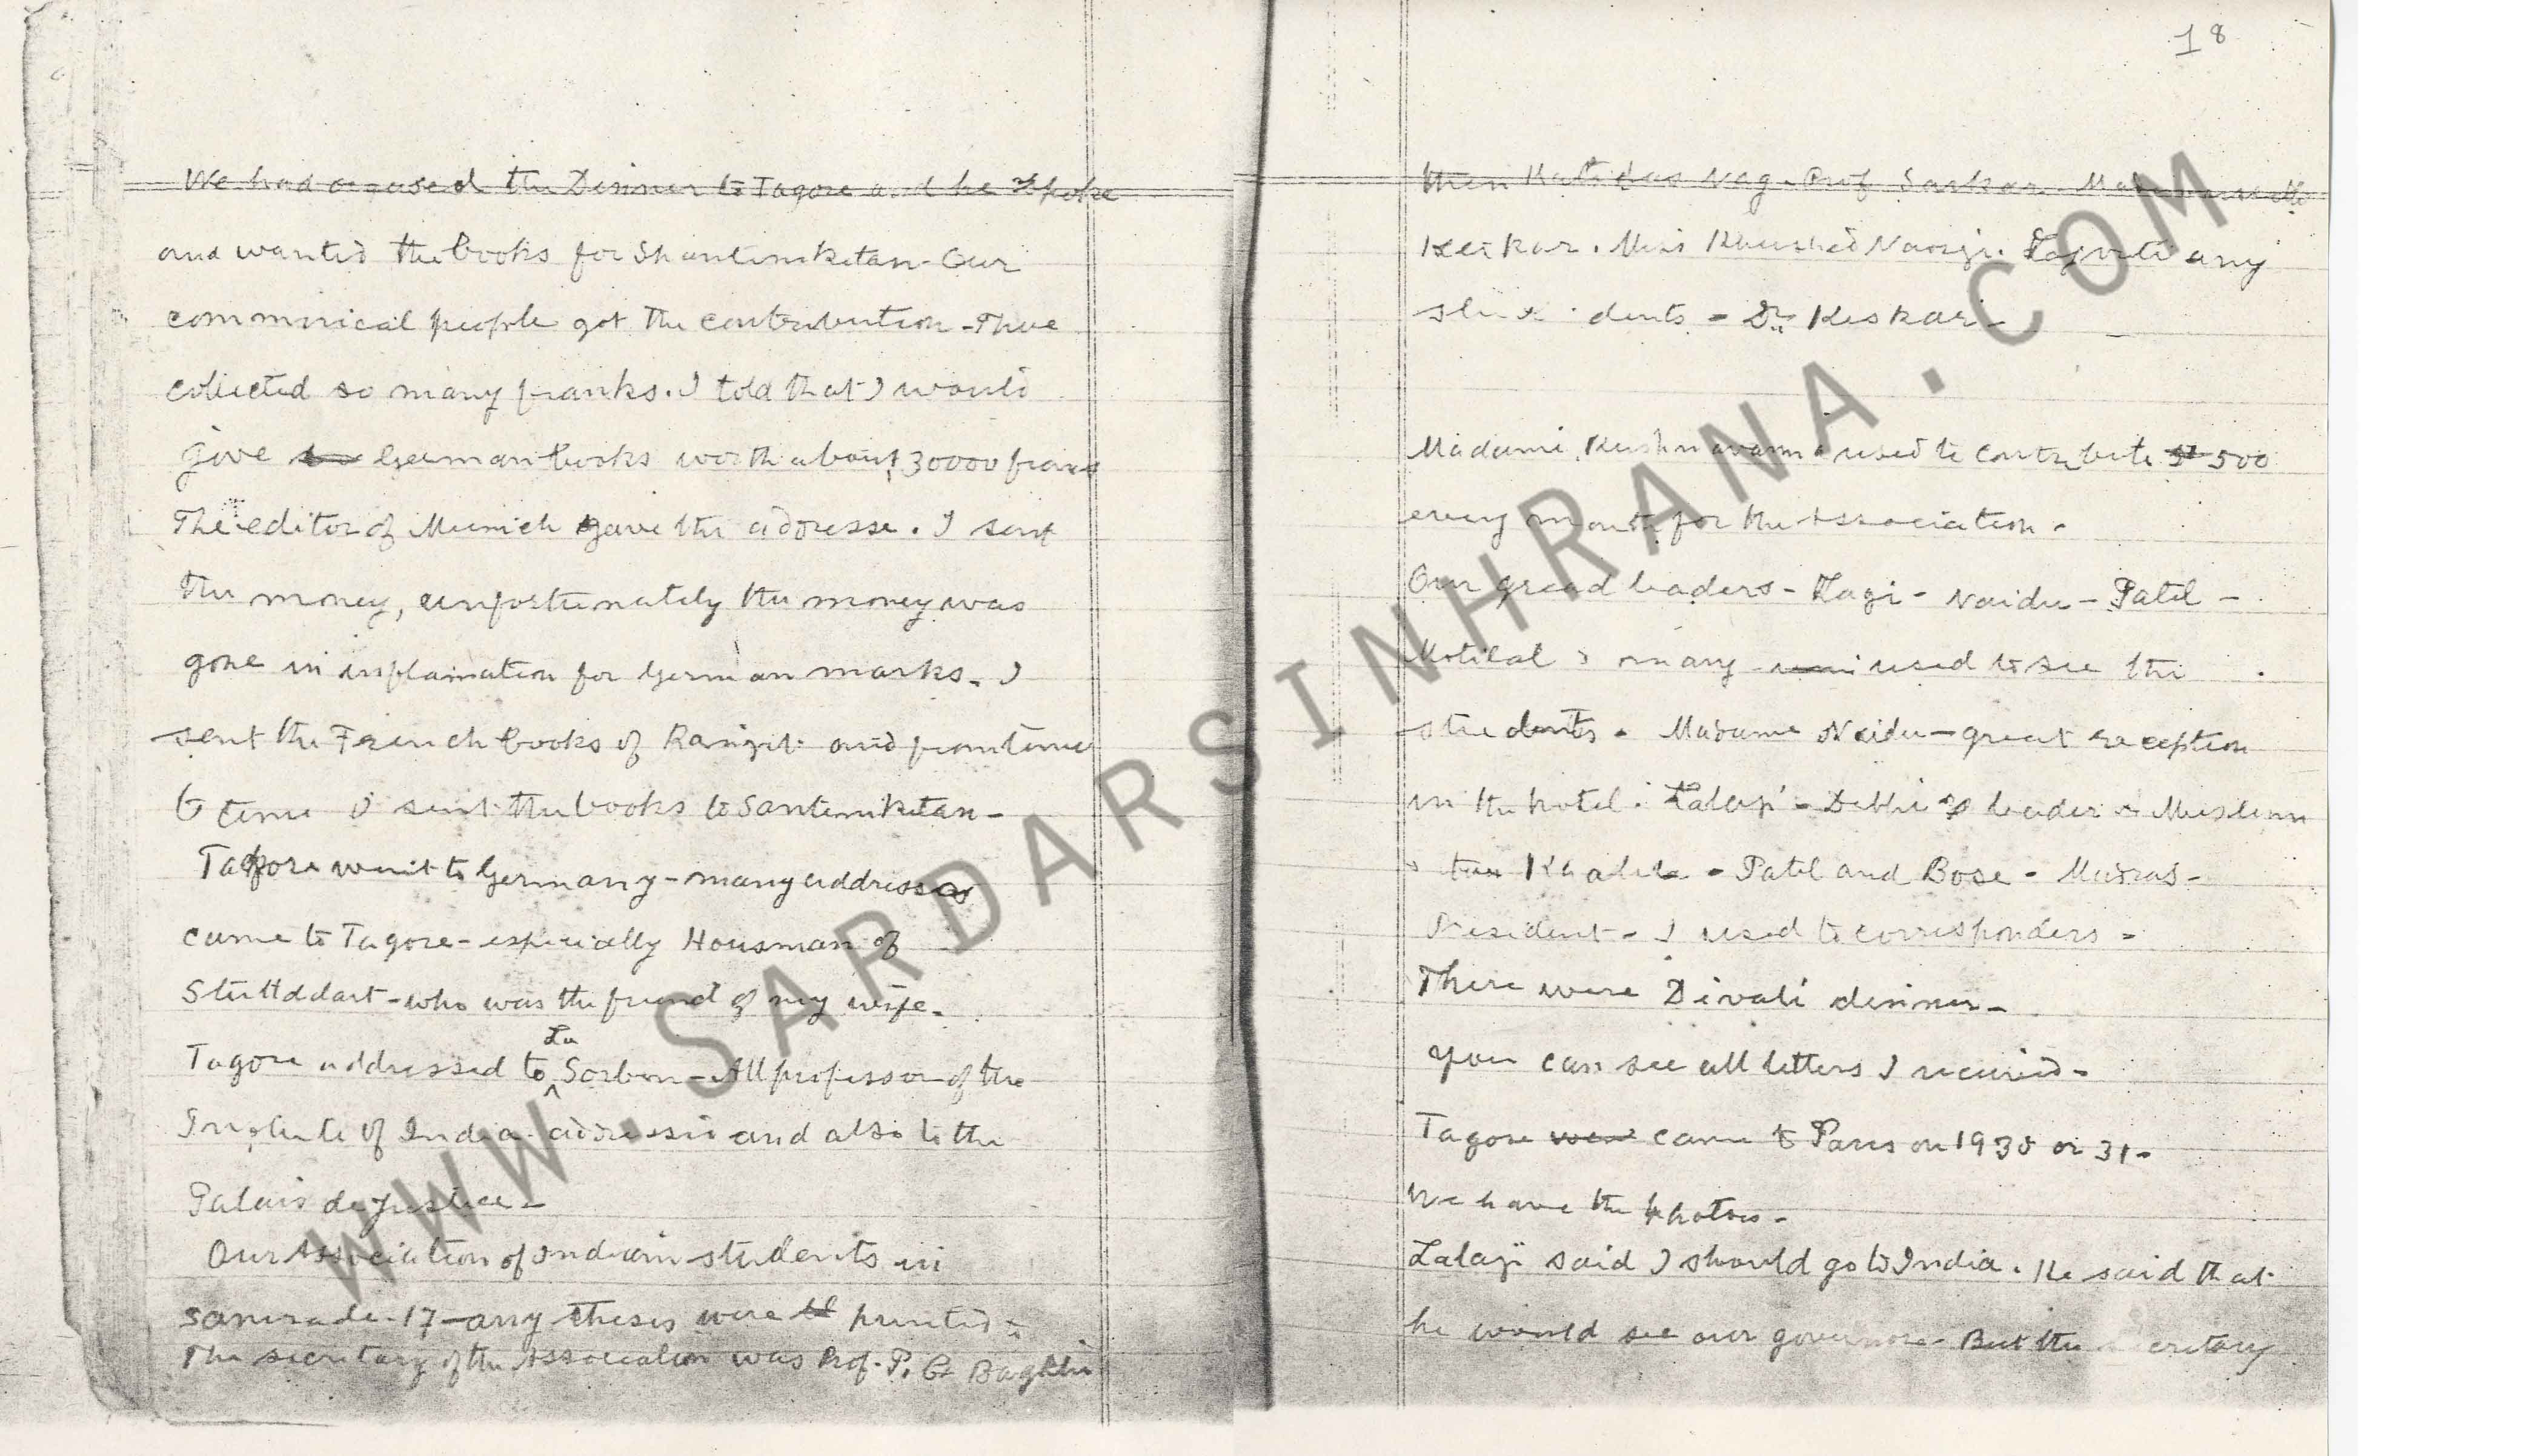 We had the Dinner to Tagore and he spoke
and wanted the books for Shantiniketan - Our
commirical people got the contribution - Thee
collected so many franks. I told that I would
give German books worth about 30000 francs
The editor of Munich gave the addresse. I sent
the money, unfortunately the money was
gone in inflamation for German marks. I
sent the French books of Ranjit and from time
to time I sent the books to Santiniketan -
Tagore went to Germany - many addresses
came to Tagore - especially Housman of
- who was the friend of my wife.
Tagore addressed to La Sorbon - All professor of the
of India and also to the
Palais de Justice -
Our Association of Indian students in
17 - any thesis were printed -
The secretary of the Association was Prof. P. C. Bagchi
18
then Kalidas Nag - Prof Sarkar -
Keskar. Miss Khurshed Naoroji. any
dents - Dr. Keskar -
Madame Krishnavarma used to contribute 500
every month for the Association -
Our great leaders - - Naidu - Patel -
Motilal & many used to see the
students. Madame Naidu - great reception
in the hotel. Lalaji - leader Muslim
- Patel and Bose - Madras -
President - I used to corresponders -
There were Divali dinner -
you can see all letters I received -
Tagore came to Paris on 1930 or 31 -
We have the photos -
Lalaji said I should go to India. He said that
he would see our governor - But the
WWW.SARDARSINHRANA.COM